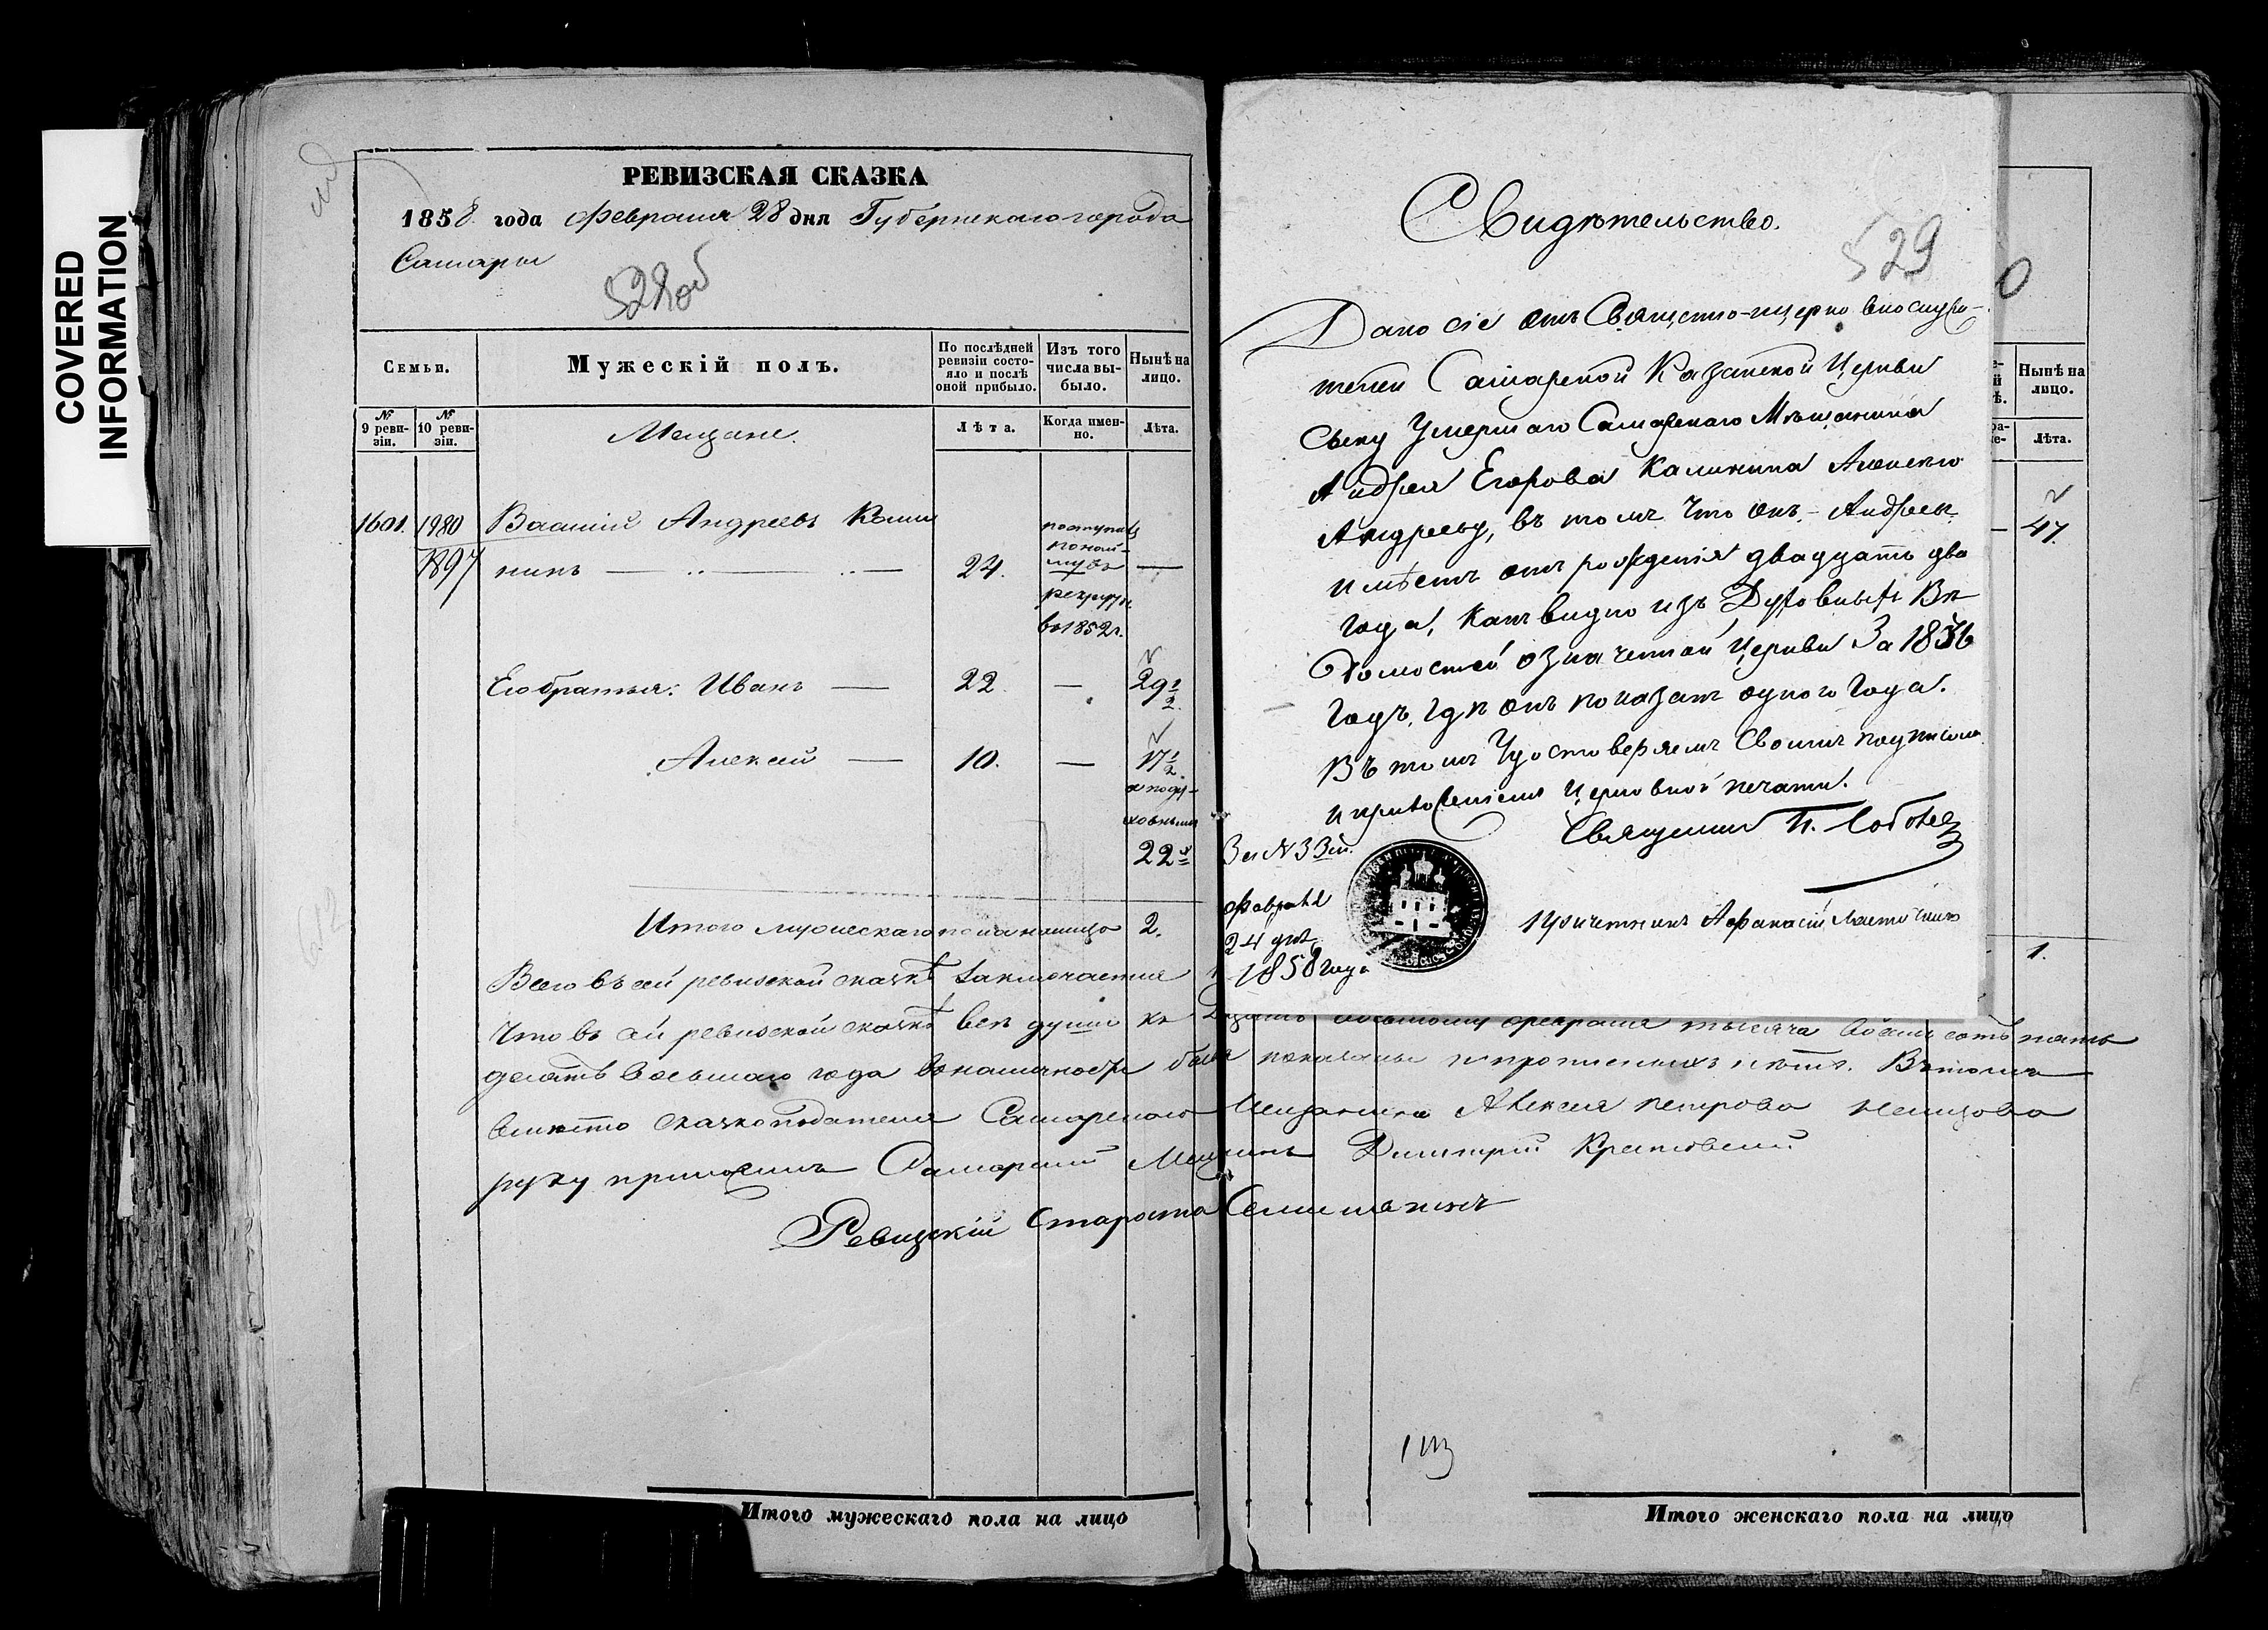 COVERED
INFORMATION
РЕВИЗСКАЯ СКАЗКА
1858 года февраля 28 дня Губернскаго города
Самары
528об
Семьи.
Мужескій полъ.
По послѣдней ревизіи состояло и послѣ оной прибыло.
Изъ того числа выбыло.
Нынѣ на лицо.
№ 9 ревизіи.
№ 10 ревизіи.
Мещане.
Лѣта.
Когда именно.
Лѣта.
1601. 1980 Василій Андреевъ Кали
1897 нинъ 24. поступилъ по найму въ рекруты въ 1852 г.
Его братья: Иванъ 22 29 1/2
Алексей 10. 17 1/2
а по духовнымъ
22
Итого мужескаго пола налицо 2.
Всего въ сей ревизской сказкѣ заключается
Что въ сей ревизской сказкѣ все души къ
десятъ восьмаго года въ наличности были показаны
вместо сказкоподателя Самарскаго Мещанина Алексея Петрова Немцова
руку приложилъ Самарский Мещанинъ Димитрий
Ревизскій Староста
Свидѣтельство.
529
Дано сіе отъ Священно-церковнослужи-
телей Самарской Казанской Церкви
Сыну Умершаго Самарскаго Мѣщанина
Андрея Егорова Калинина Алексею
Андрееву, въ томъ что онъ - Андреевъ
имѣетъ отъ рожденія двадцать два
года, какъ видно изъ Духовныхъ Вѣ
домостей означенной Церкви За 1836
Годъ, гдѣ онъ показанъ одного Года.
Въ томъ Удостоверяемъ Своимъ подписомъ
и приложеніемъ Церковной печати.
Священникъ П.
За № 33м.
Февраля
24 дня
1858 года
Причетникъ Афанасій
Нынѣ на лицо.
Лѣта.
47.
1.
восьмому февраля тысяча восемь сотъ пять
В томъ
Итого мужескаго пола на лицо
Итого женскаго пола на лицо